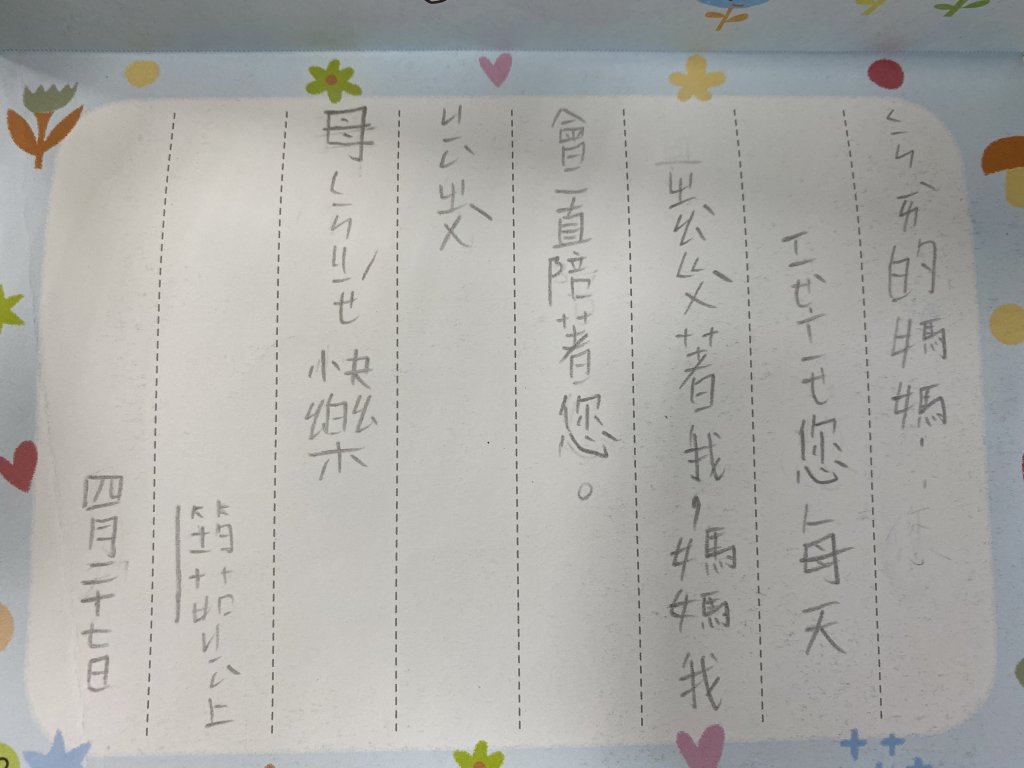 ㄑㄧㄣㄞˋ的媽媽:
ㄒㄧㄝˋㄒㄧㄝ您每天
ㄓㄠˋㄍㄨˋ著我,媽媽我
會一直陪著您。
ㄐㄧㄥㄓㄨˋ
母ㄑㄧㄣㄐㄧㄝˊ快樂
ㄐㄧㄥ上
四月二十七日